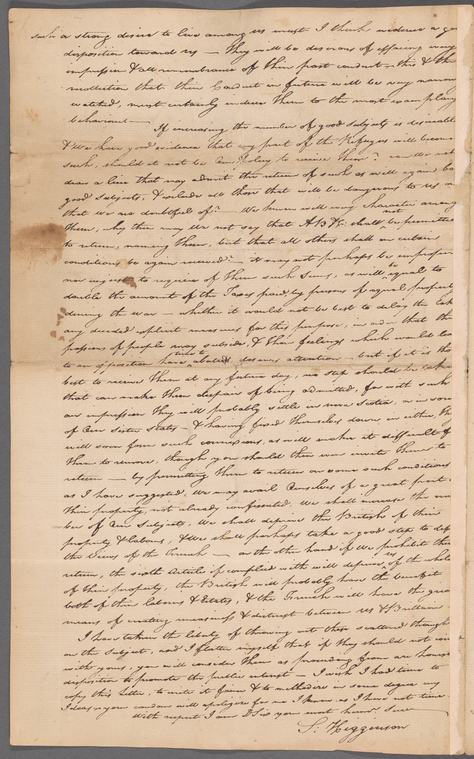 such a strong desire to live among us must I think evidence a good
disposition toward us — They will be desirous of effacing every
impression & all remembrance of their past conduct — this & the
recollection that their Conduct in future will be very narrowly
watched, must certainly induce them to the most exemplary
behaviour —
If increasing the number of good subjects is desirable
& We have good evidence that any part of the Refugees will become
such, should it not be Our policy to receive them? can We not
draw a line that may admit the return of such as will again be
good subjects, & exclude all those that will be dangerous to us or
that we are doubtful of? We know well many characters among
them, why then may We not say that A B & C shall not be permitted
to return, naming them, but that all others shall on certain
conditions be again received? — it may not perhaps be improper
nor unjust to require of them such Sums, as will be equal to
double the amount of the Taxes paid by persons of equal property
during the War — whether it would not be best to delay the taking
any decided explicit measures for this purpose, in order that the
passions of people may subside, & their feelings which would lead
to an opposition have time to abate deserves attention — but if it is thought
best to receive them at any future day, no step should be taken
that can make them despair of being admitted, for with such
an impression they will probably settle in nova Scotia, or in some
of Our Sister States — & having fixed themselves down in either, they
will soon form such connexions, as will make it difficult for
them to remove, though you should then even invite them to
return — by permitting them to return on some such conditions
as I have suggested, We may avail Ourselves of a great part of
their property, not already confiscated, We shall increase the num
ber of Our Subjects, We shall deprive the British of their
property & labours, & We shall perhaps take a good step to defeat
the Views of the French — on the other hand if We prohibit their
return, the sixth Article if complied with will deprive us of the whole
of their property, the British will probably have the benefit
both of their labours & Estates, & the French will have the great
means of creating uneasiness & distrust between us & Britain
I have taken the liberty of throwing out these scattered thoughts
on the Subject, and I flatter myself that if they should not coincide
with yours, you will consider them as proceeding from an honest
disposition to promote the public interest — I wish I had time to
copy this Letter, to write it fairer & to methodize in some degree my
Ideas — your candour will apologize for me I know as I have not time
With respect I am D Sir your most hum Serv
S. Higginson